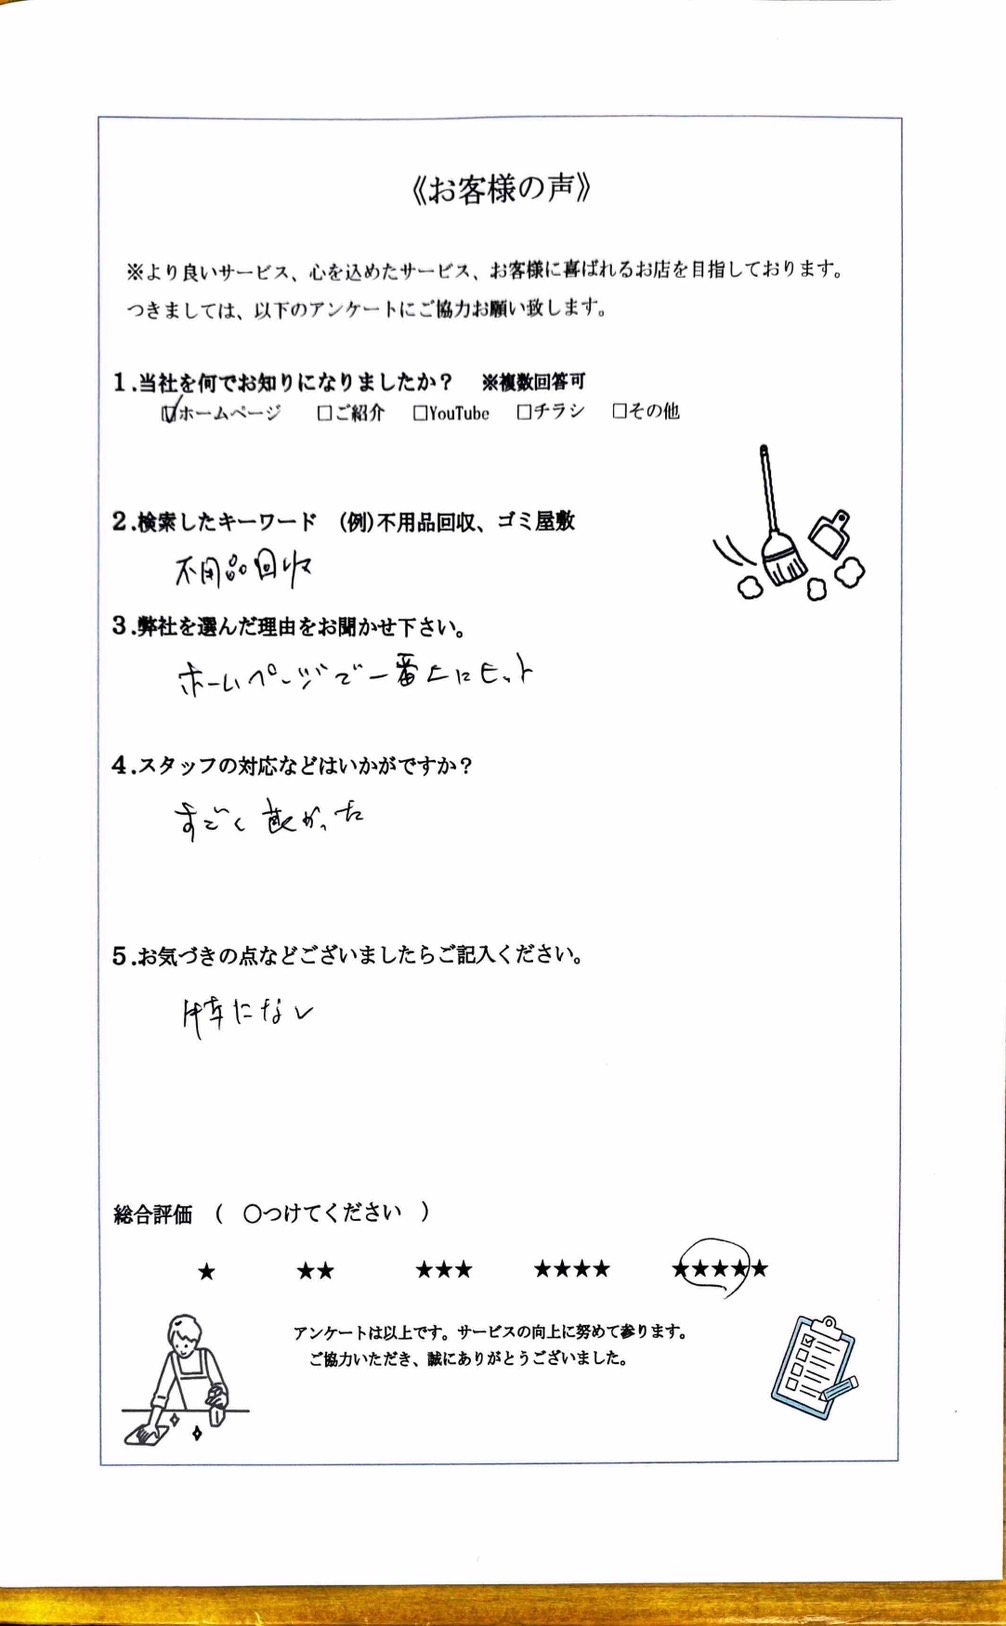 《お客様の声》
※より良いサービス、心を込めたサービス、お客様に喜ばれるお店を目指しております。
つきましては、以下のアンケートにご協力お願い致します。
1.当社を何でお知りになりましたか？　※複数回答可
☑ホームページ　□ご紹介　□YouTube　□チラシ　□その他
2.検索したキーワード　(例)不用品回収、ゴミ屋敷
不用品回収
3.弊社を選んだ理由をお聞かせ下さい。
ホームページで一番上にヒット
4.スタッフの対応などはいかがですか？
すごく良かった
5.お気づきの点などございましたらご記入ください。
特になし
総合評価　（　○つけてください　）
★　★★　★★★　★★★★　★★★★★
アンケートは以上です。サービスの向上に努めて参ります。
ご協力いただき、誠にありがとうございました。